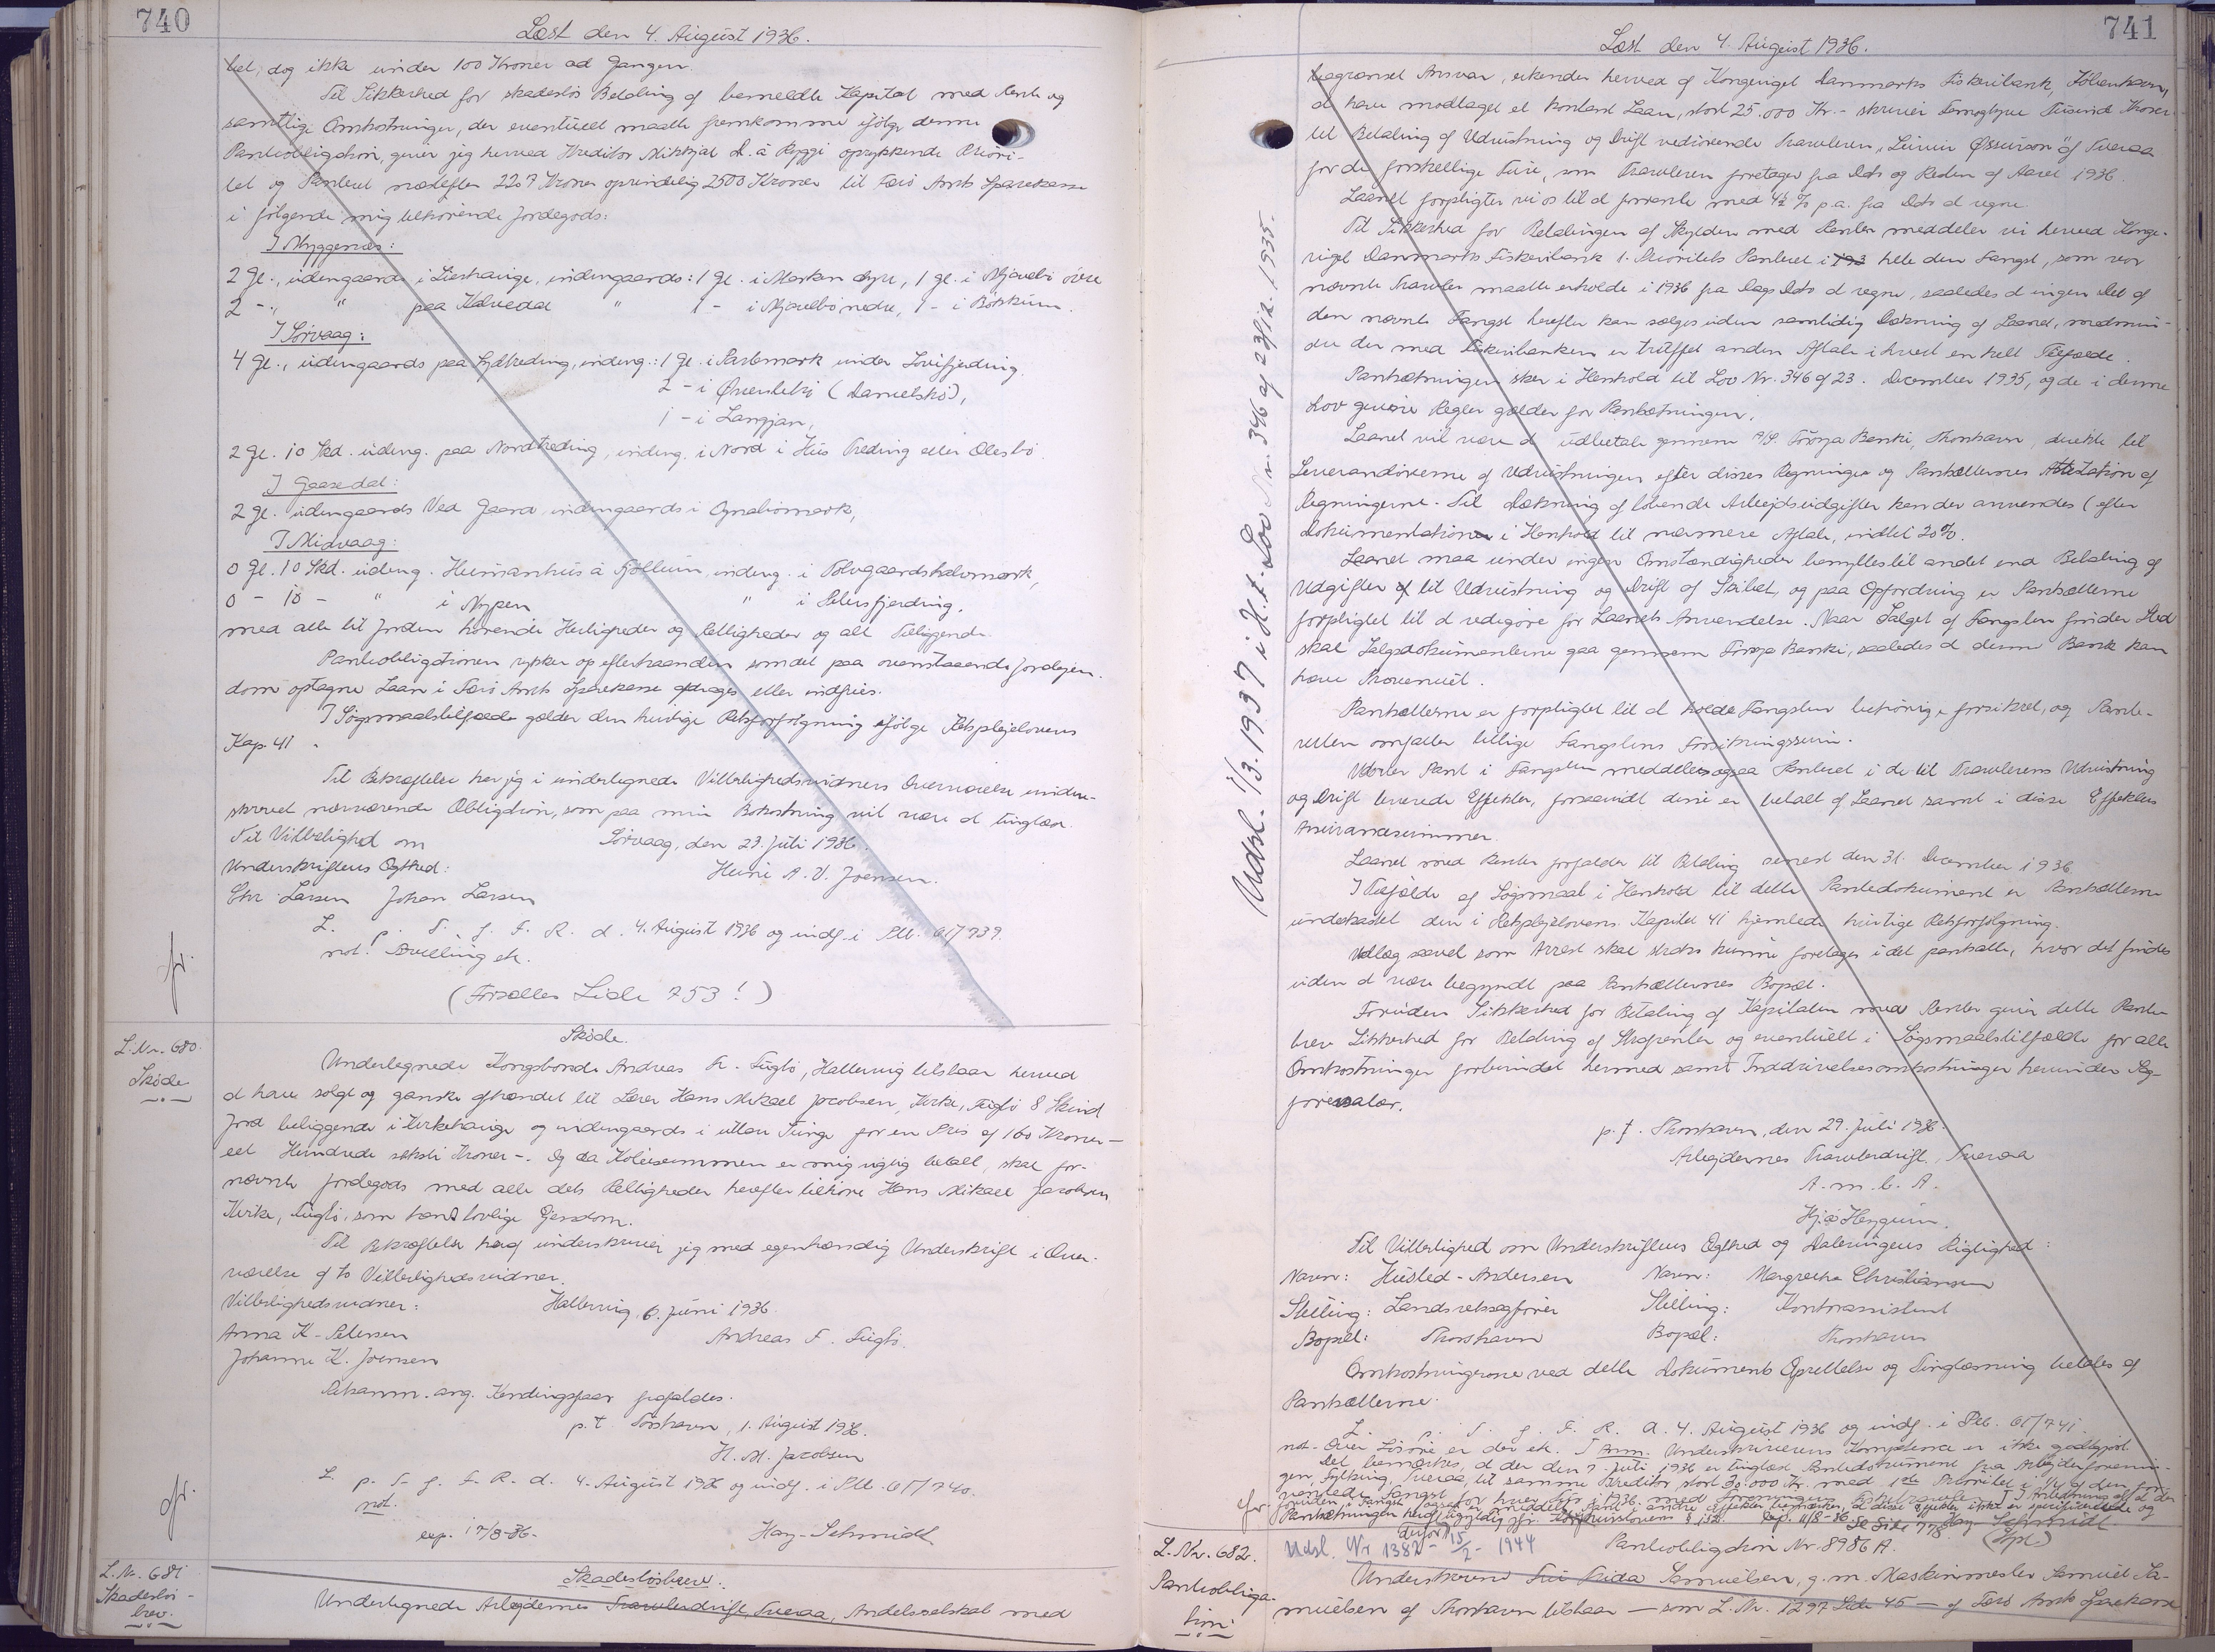 740
Læst den 4. August 1936.
tet, dog ikke under 100 Kroner ad Gangen.
Til Sikkerhed for skadesløs Betaling af bemeldte Kapital med Rente og
samtlige Omkostninger, der eventuelt maatte fremkomme ifølge denne
Panteobligation, giver jeg herved Kreditor Mikkjal D. á Ryggi oprykkende Priori-
tet og Panteret næstefter 2207 Kroner oprindelig 2500 Kroner til Færø Amts Sparekasse
i følgende mig tilhørende Jordegods:
I Myggenæs:
2 Gl., udengaards i Lierhauge, indengaards: 1 Gl. i Marken dyre, 1 gl. i Mjavebø øvre
2 - , " paa Kalvedal " 1 - i Mjavebø nedre, 1 - i Bøskum.
I Sørvaag:
4 Gl., udengaards paa Hjaltreding, indeng.: 1 Gl. i Partemark under Louisfjerding.
2 - i Øvensteby (Danielsbø),
1 - i Langjan,
2 Gl. 10 Skd. udeng. paa Nordtreding, indeng. i Nord i Hus Treding eller Olesbø.
I Gaasedal:
2 Gl. udengaards Ved Gaard indengaards i Ognabømark,
I Midvaag:
0 Gl. 10 Skd. udeng. Heimanhus á Fjøllum, indeng. i Tolvgaardshalvmark,
0 - 10 - " i Nypen " i Silursfjerding.
med alle til Jorden hørende Herligheder og Rettigheder og alt Tilliggende.
Panteobligationen rykker op efterhaanden som det paa ovenstaaende Jordejen-
dom optagne Laan i Færø Amts Sparekasse afdrages eller indfries.
I Søgsmaalstilfælde gælder den hurtige Retsforfølgning ifølge Retsplejelovens
Kap. 41.
Til Bekræftelse har jeg i undertegnede Vitterlighedsvidners Overværelse under-
skrevet nærværende Obligation, som paa min Bekostning vil være at tinglæse.
Til Vitterlighed om Sørvaag, den 23. Juli 1936.
Underskriftens Ægthed: Heini A. V. Joensen.
Chr. Larsen Johan Larsen
L. p. T. f. F. R. d. 4. August 1936 og indf. i Ptb. 61/739.
not! Dvelling ek.
(Forsættes Side 753!)
fr.
L. Nr. 680.
Skøde
Skøde.
Undertegnede Kongsbonde Andreas Fr. Fuglø, Hattervig tilstaar herved
at have solgt og ganske afhændet til Lærer Hans Mikael Jacobsen, Kirke, Fuglø 8 Skind
Jord beliggende i Kirkehauge og indengaards i uttan Tunge for en Pris af 160 Kroner -
eet Hundrede seksti Kroner -. Og da Købesummen er mig rigtig betalt, skal for-
nævnte Jordegods med alle dets Rettigheder herefter tilhøre Hans Mikael Jacobsen
Kirke, Fuglø, som hans lovlige Ejendom.
Til Bekræftelse heraf underskriver jeg med egenhændig Underskrift i Over-
værelse af to Vitterlighedsvidner.
Vitterlighedsvidner: Hattervig, 6. Juni 1936.
Anna K. Petersen Andreas F. Fuglø.
Johanne K. Joensen
Bekanm. ang. Kendingsfaar frafaldes.
p.t. Torshavn, 1. August 1936.
H. M. Jacobsen
L. p. T. f. F. R. d. 4. August 1936 og indf. i Ptb. 61/740.
not.
exp. 17/8-36. Hay-Schmidt
fr.
L. Nr. 681
Skadesløs-
brev.
Skadesløsbrev.
Undertegnede Arbejdernes Trawlerdrift, Tveraa, Andelsselskab med
741
Læst den 4. August 1936.
begrænset Ansvar, erkender herved af Kongeriget Danmarks Fiskeribank, København,
at have modtaget et kontant Laan, stort 25.000 Kr. - skriver Femogtyve Tusind Kroner -
til Betaling af Udrustning og Drift vedrørende Trawleren "Leivur Øssurson" af Tveraa
for de forskellige Ture, som Trawleren foretager fra Dato og Resten af Aaret 1936.
Laanet forpligter vi os til at forrente med 4½ % p.a. fra Dato at regne.
Til Sikkerhed for Betalingen af Skylden med Renter meddeler vi herved Konge-
riget Danmarks Fiskeribank 1. Prioritets Panteret i hele den Fangst, som vor
nævnte Trawler maatte erholde i 1936 fra Dags Dato at regne, saaledes at ingen Del af
den nævnte Fangst herefter kan sælges uden samtidig Dækning af Laanet, medmin-
dre der med Fiskeribanken er truffet anden Aftale i hvert enkelt Tilfælde.
Pantsætningen sker i Henhold til Lov Nr. 346 af 23. December 1935, og de i denne
Lov givne Regler gælder for Pantsætningen.
Laanet vil være at udbetale gennem A/S Føroya Banki, Thorshavn, direkte til
Leverandørerne af Udrustningen efter disses Regninger og Pantsætternes Attestation af
Regningerne. Til Dækning af løbende Arbejdsudgifter kan der anvendes (efter
Dokumentation i Henhold til nærmere Aftale, indtil 20%.
Laanet maa under ingen Omstændigheder benyttes til andet end Betaling af
Udgifter til Udrustning og Drift af Skibet, og paa Opfordring er Pantsætterne
forpligtet til at redegøre for Laanets Anvendelse. Naar Salget af Fangsten finder Sted
skal Salgsdokumenterne gaa gennem Føroya Banki, saaledes at denne Bank kan
hæve Provenuet.
Pantsætterne er forpligtet til at holde Fangsten behørigt forsikret, og Pante-
retten omfatter tillige Fangstens Forsikringssum.
Udover Pant i Fangsten meddeles ogsaa Panteret i de til Trawlerens Udrustning
og Drift leverede Effekter, forsaavidt disse er betalt af Laanet samt i disse Effekters
Assurancesummer.
Laanet med Renter forfalder til Betaling senest den 31. December 1936.
I Tilfælde af Søgsmaal i Henhold til dette Pantedokument er Pantsætterne
underkastet den i Retsplejelovens Kapitel 41 hjemlede hurtige Retsforfølgning.
Udlæg saavel som Arrest skal straks kunne foretages i det pantsatte, hvor det findes
uden at være begyndt paa Pantsætternes Bopæl.
Foruden Sikkerhed for Betaling af Kapitalen med Renter giver dette Pante-
brev Sikkerhed for Betaling af Strafrenter og eventuelt i Søgsmaalstilfælde for alle
Omkostninger forbundet hermed samt Inddrivelsesomkostninger herunder Sag-
førersalær.
p.t. Thorshavn, den 29. Juli 1936.
Arbejdernes Trawlerdrift, Tveraa
A. m. b. A.
Hja Heygum.
Til Vitterlighed om Underskriftens Ægthed og Dateringens Rigtighed:
Navn: Husted-Andersen Navn: Margrethe Christiansen
Stilling: Landsretssagfører Stilling: Kontorassistent
Bopæl: Thorshavn Bopæl: Thorshavn
Omkostningerne ved dette Dokuments Oprettelse og Tinglæsning betales af
Pantsætterne.
L. p. T. f. F. R. d. 4. August 1936 og indf. i Ptb. 61/741.
not. Over Løsøre er der ek. I Anm. Underskriverens Kompetence er ikke godtgjort
Det bemærkes, at der den 7. Juli 1936 er tinglæst Pantedokument fra Arbejderforenin-
gen, Fylking, Tveraa til samme Kreditor stort 30.000 Kr. med 1ste Prioritet i
Udsl. 1/3.1937 i H.t. Lov Nr. 346 af 23/12 1935.
fr.
Se Side 778 Hay-Schmidt
L. Nr. 682.
Panteobliga-
tion
Udsl. Nr 1382 - 15/2 - 1944
Panteobligation Nr. 8986 A.
Underskrevne Frida Samuelsen, g. m. Maskinmester Samuel Sa-
muelsen af Thorshavn tilstaar - som L. Nr. 1297 Side 45 - af Færø Amts Sparekasse